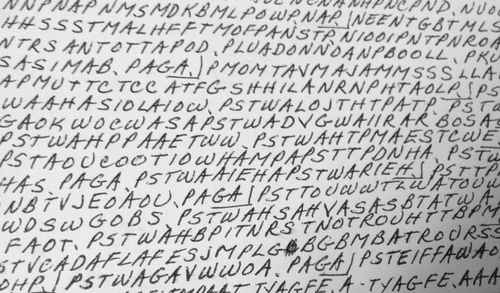 NNPNAPNMSMDKBMLPOWPNAP,|NEENTGBTMLS
HHSSSSTMALHFFTMOFPANSTP,NIOOIPNTPNROO
NTRSANTOTTAPOD. PLUADONNOANPBOOLL. PKU
SASIMAB. PAGA,|PMOMTAVMAJAMMSSSLLA
APMUTTCTCC ATFGSHHILANRNPHTAOLP|PS
WAAHASIOLAIOW. PSTWALOJTHTPATP. PST
GAOKWOCWASAPSTWADVGWAIIRAR BOSAS
PSTWAHPPAAETWW. PSTWAHTPMAESTCWE
PSTAOUCOOTIOWHAMPAPSTTPDNHA. PSTW
HAS. PAGA. PSTWAAIEHAPSTWARIEH.|PSTTP
NBTVJEOAOU. PAGA|PSTTOUWWTLWATOUW
WDSWGOBS. PSTWAHSAHVASASBTATWA
FAOT. PSTWAHBPITNRSTNOTROUHTTBPM
STVCADAFLAFESJMPLG BGBMBATROURSS
DHP|PSTWAGAVWWOA. PAGA|PSTEIFFAWAO
TYAGFE. A-TYAGFE. AAA